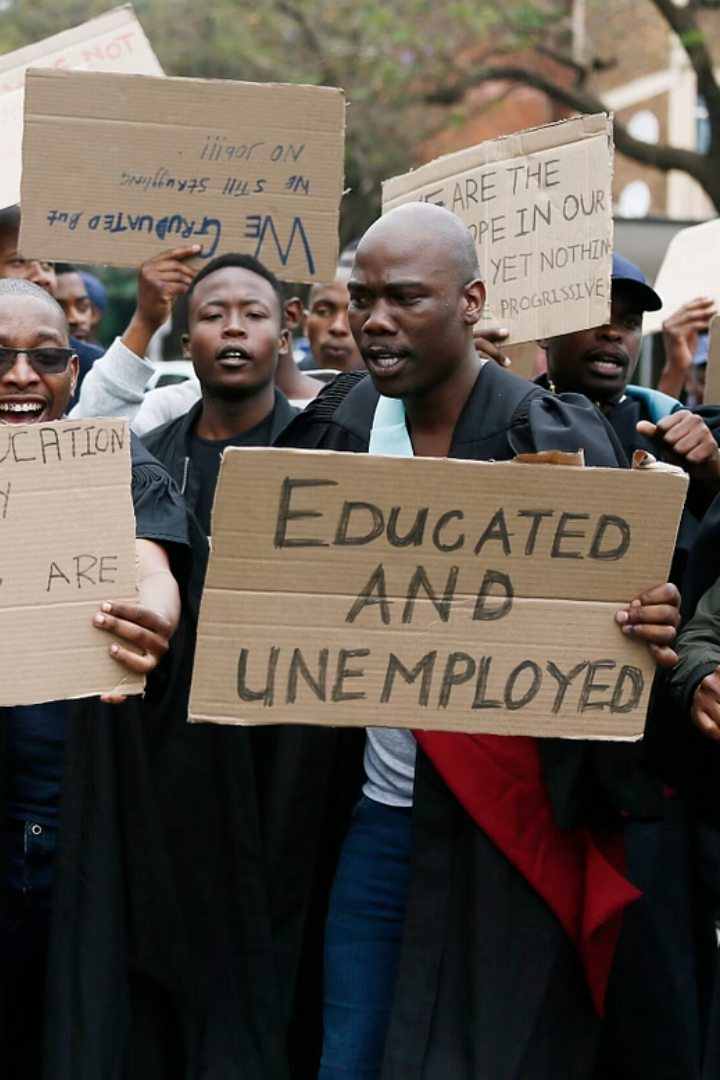 NOT
WE GRUDUATED BUT
WE STILL STRUGGLING
NO JOB!!!!
WE ARE THE
OPE IN OUR
YET NOTHIN
PROGRESSIVE
UCATION
Y
ARE
EDUCATED
AND
UNEMPLOYED